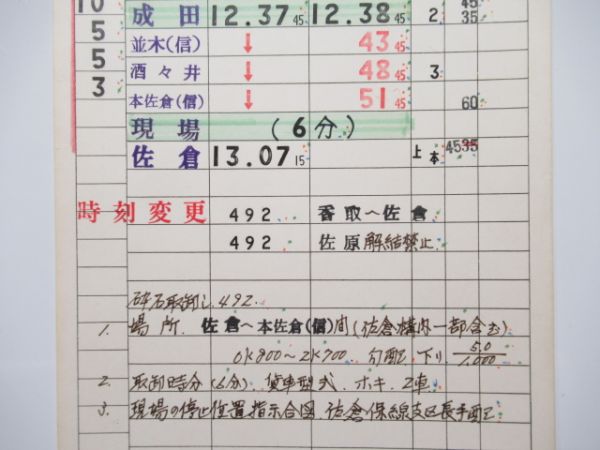 10
成田 12.37 45 12.38 45 2 45 35
5 並木(信) ↓ 43 45
5 酒々井 ↓ 48 45 3
3 本佐倉(信) ↓ 51 45 60
現場 (6分)
佐倉 13.07 15 上本 45 35
時刻変更 492 香取〜佐倉
492 佐原解結禁止
砕石取卸し 492.
1. 場所. 佐倉〜本佐倉(信)間(佐倉構内一部含む)
0K800〜2K700 勾配 下り 5.0/1,000
2. 取卸時分(6分) 貨車型式 ホキ 2車
3. 現場の停止位置指示合図 佐倉保線支区長手配ズミ